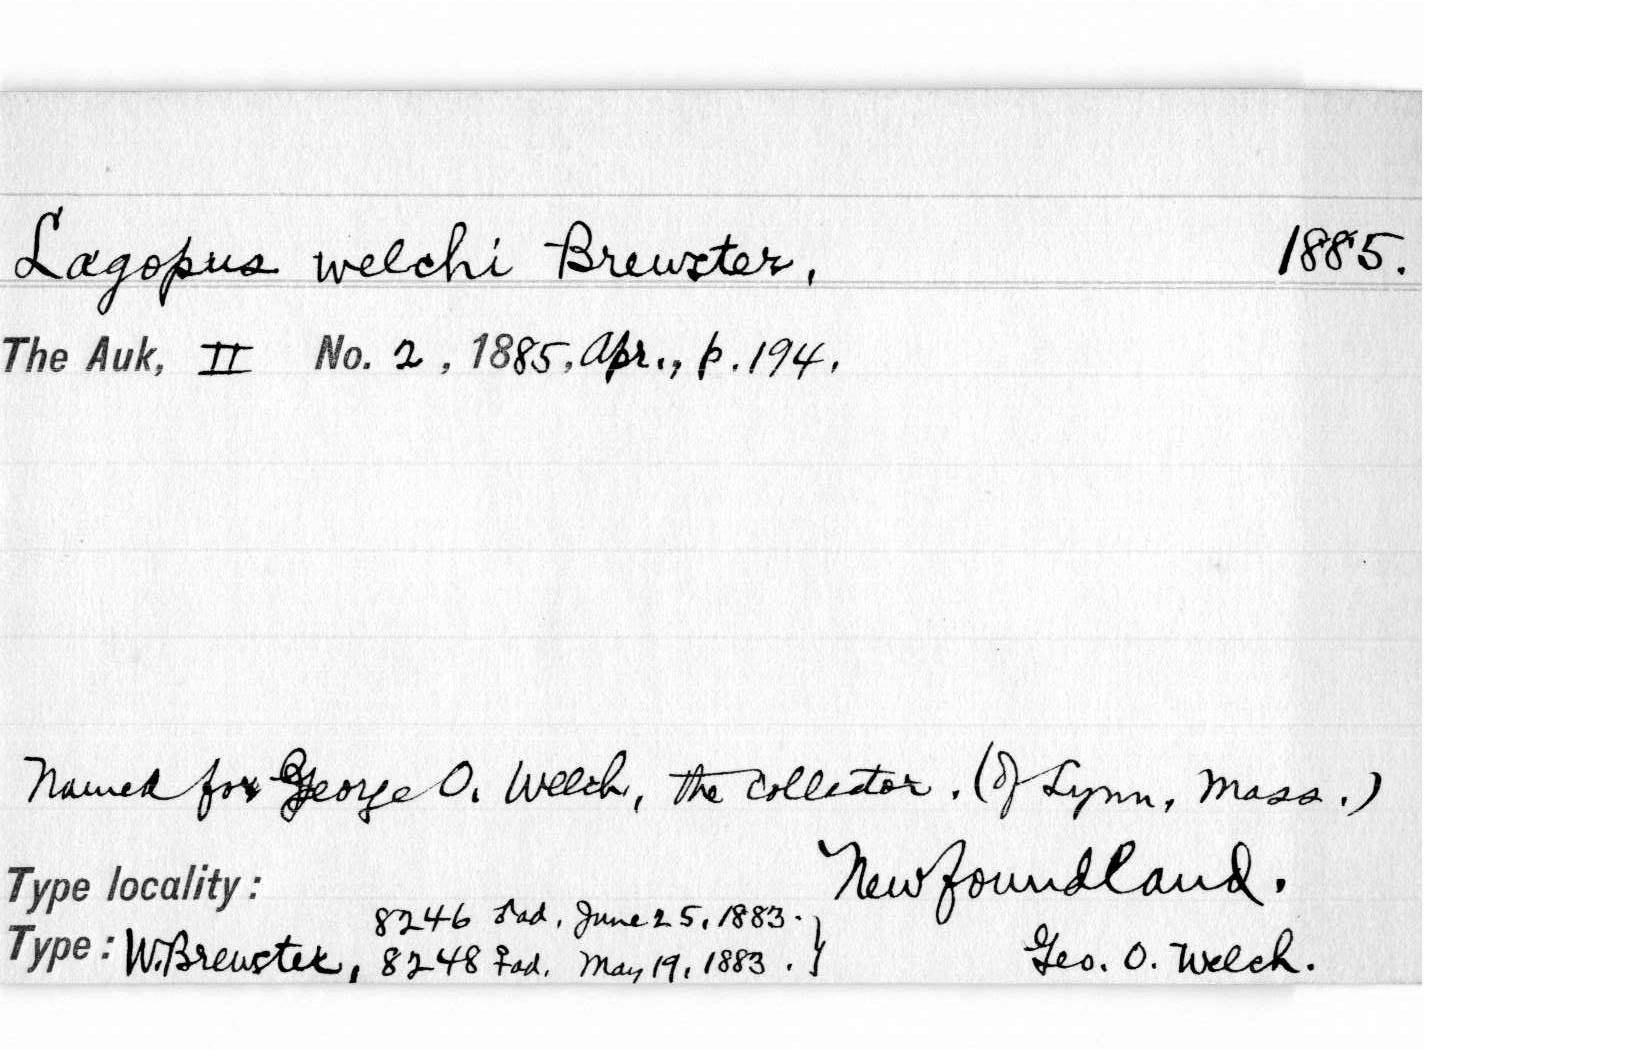 Lagopus welchi Brewster, 1885.
The Auk, II No. 2, 1885, Apr., p. 194.
Named for George O. Welch, the collector. (of Lynn, Mass.)
Type locality: Newfoundland.
8246 ♂ad. June 25, 1883.
Type: W. Brewster, 8248 ♀ad. May 19, 1883. } Geo. O. Welch.